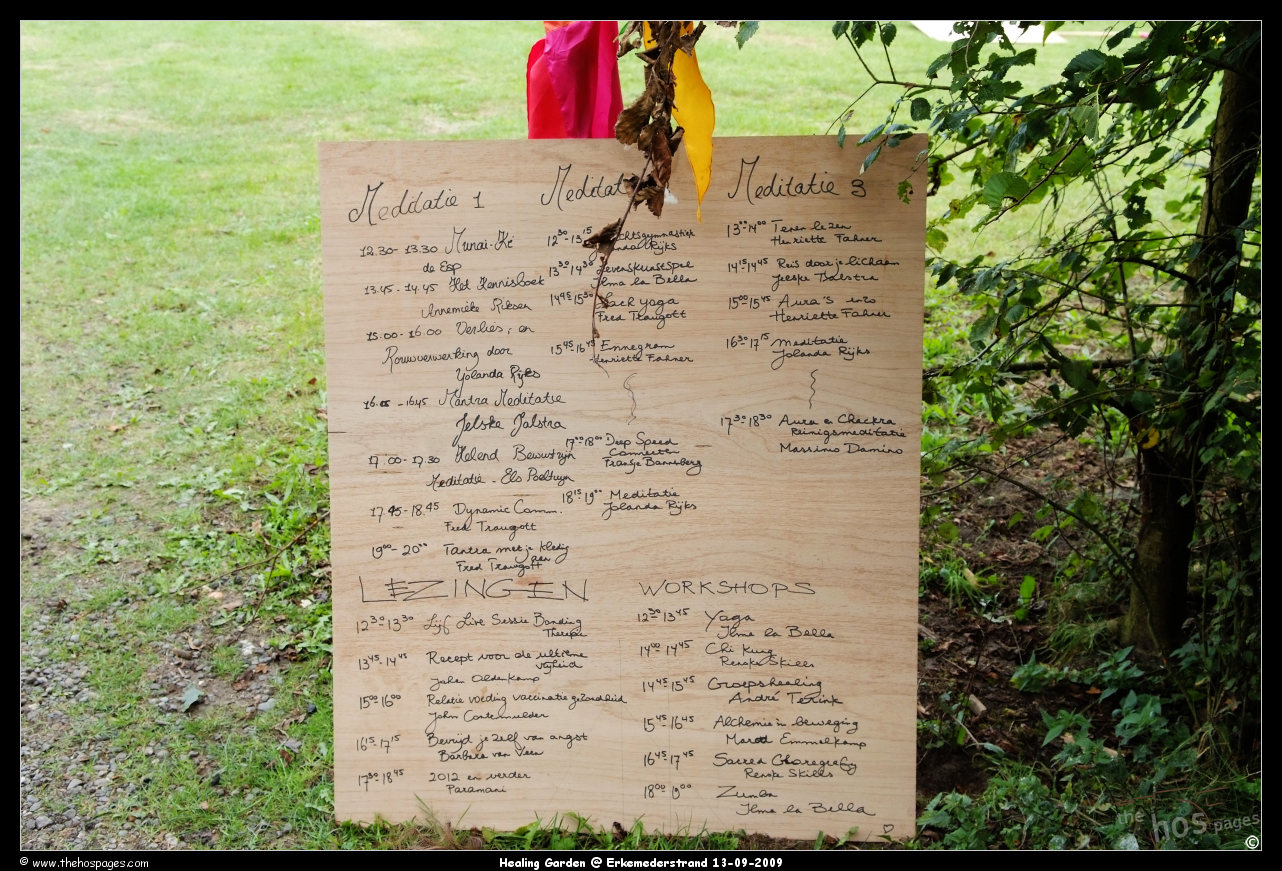 Meditatie 1
12.30- 13.30 Munai-Ké
de Esp
13.45 - 14.45 Het Kennisboek
Annemieke
15.00 - 16.00 Verlies, en
Rouwverwerking door
Yolanda Rijks
- 1645 Mantra Meditatie
Jelske Jalstra
17 00 - 17.30 Helend Bewustzijn
Meditatie - Els
17.45 - 18.45 Dynamic Comm.
Fred Traugott
19⁰⁰- 20⁰⁰ Tantra met je kledij
aan
Fred Traugott
Meditat
12³⁰-13¹⁵
Rijks
13³⁰-14³⁰ Levenskunstspel
Ilma la Bella
14⁴⁵-15³⁰ Lach yoga
Fred Traugott
15⁴⁵-16⁴⁵ Ennegram
Henriette Fahner
17⁰⁰-18⁰⁰ Deep Speed
Connecten
Fransje
18¹⁵ 19⁰⁰ Meditatie
Jolanda Rijks
Meditatie 3
13⁰⁰-14⁰⁰ Tenen lezen
Henriette Fahner
14¹⁵-14⁴⁵ Reis door je lichaam
Jeeske Balstra
15⁰⁰-15⁴⁵ Aura's enzo
Henriette Fahner
16³⁰-17¹⁵ meditatie
Jolanda Rijks
17³⁰-18³⁰ Aura en Chackra
Reinigsmeditatie
Massimo Damino
LEZINGEN
12³⁰-13³⁰ Lijf Live Sessie Bonding
Therapie
13⁴⁵-14⁴⁵ Recept voor de ultieme
vrijheid
Johan Oldenkamp
15⁰⁰-16⁰⁰ Relatie voeding vaccinatie gezondheid
John Consemulder
16¹⁵-17¹⁵ Bevrijd jezelf van angst
Barbara van Veen
17³⁰-18⁴⁵ 2012 en verder
Paramani
WORKSHOPS
12³⁰-13⁴⁵ Yoga
Ilma la Bella
14⁰⁰-14⁴⁵ Chi Kung
Renske Skills
14⁴⁵-15⁴⁵ Groepshealing
André Terink
15⁴⁵-16⁴⁵ Alchemie in beweging
Emmelkamp
16⁴⁵-17⁴⁵ Sacred Choregrafy
Renske Skills
18⁰⁰-19⁰⁰ Zumba
Ilma la Bella
the hos pages
©
© www.thehospages.com
Healing Garden @ Erkemederstrand 13-09-2009